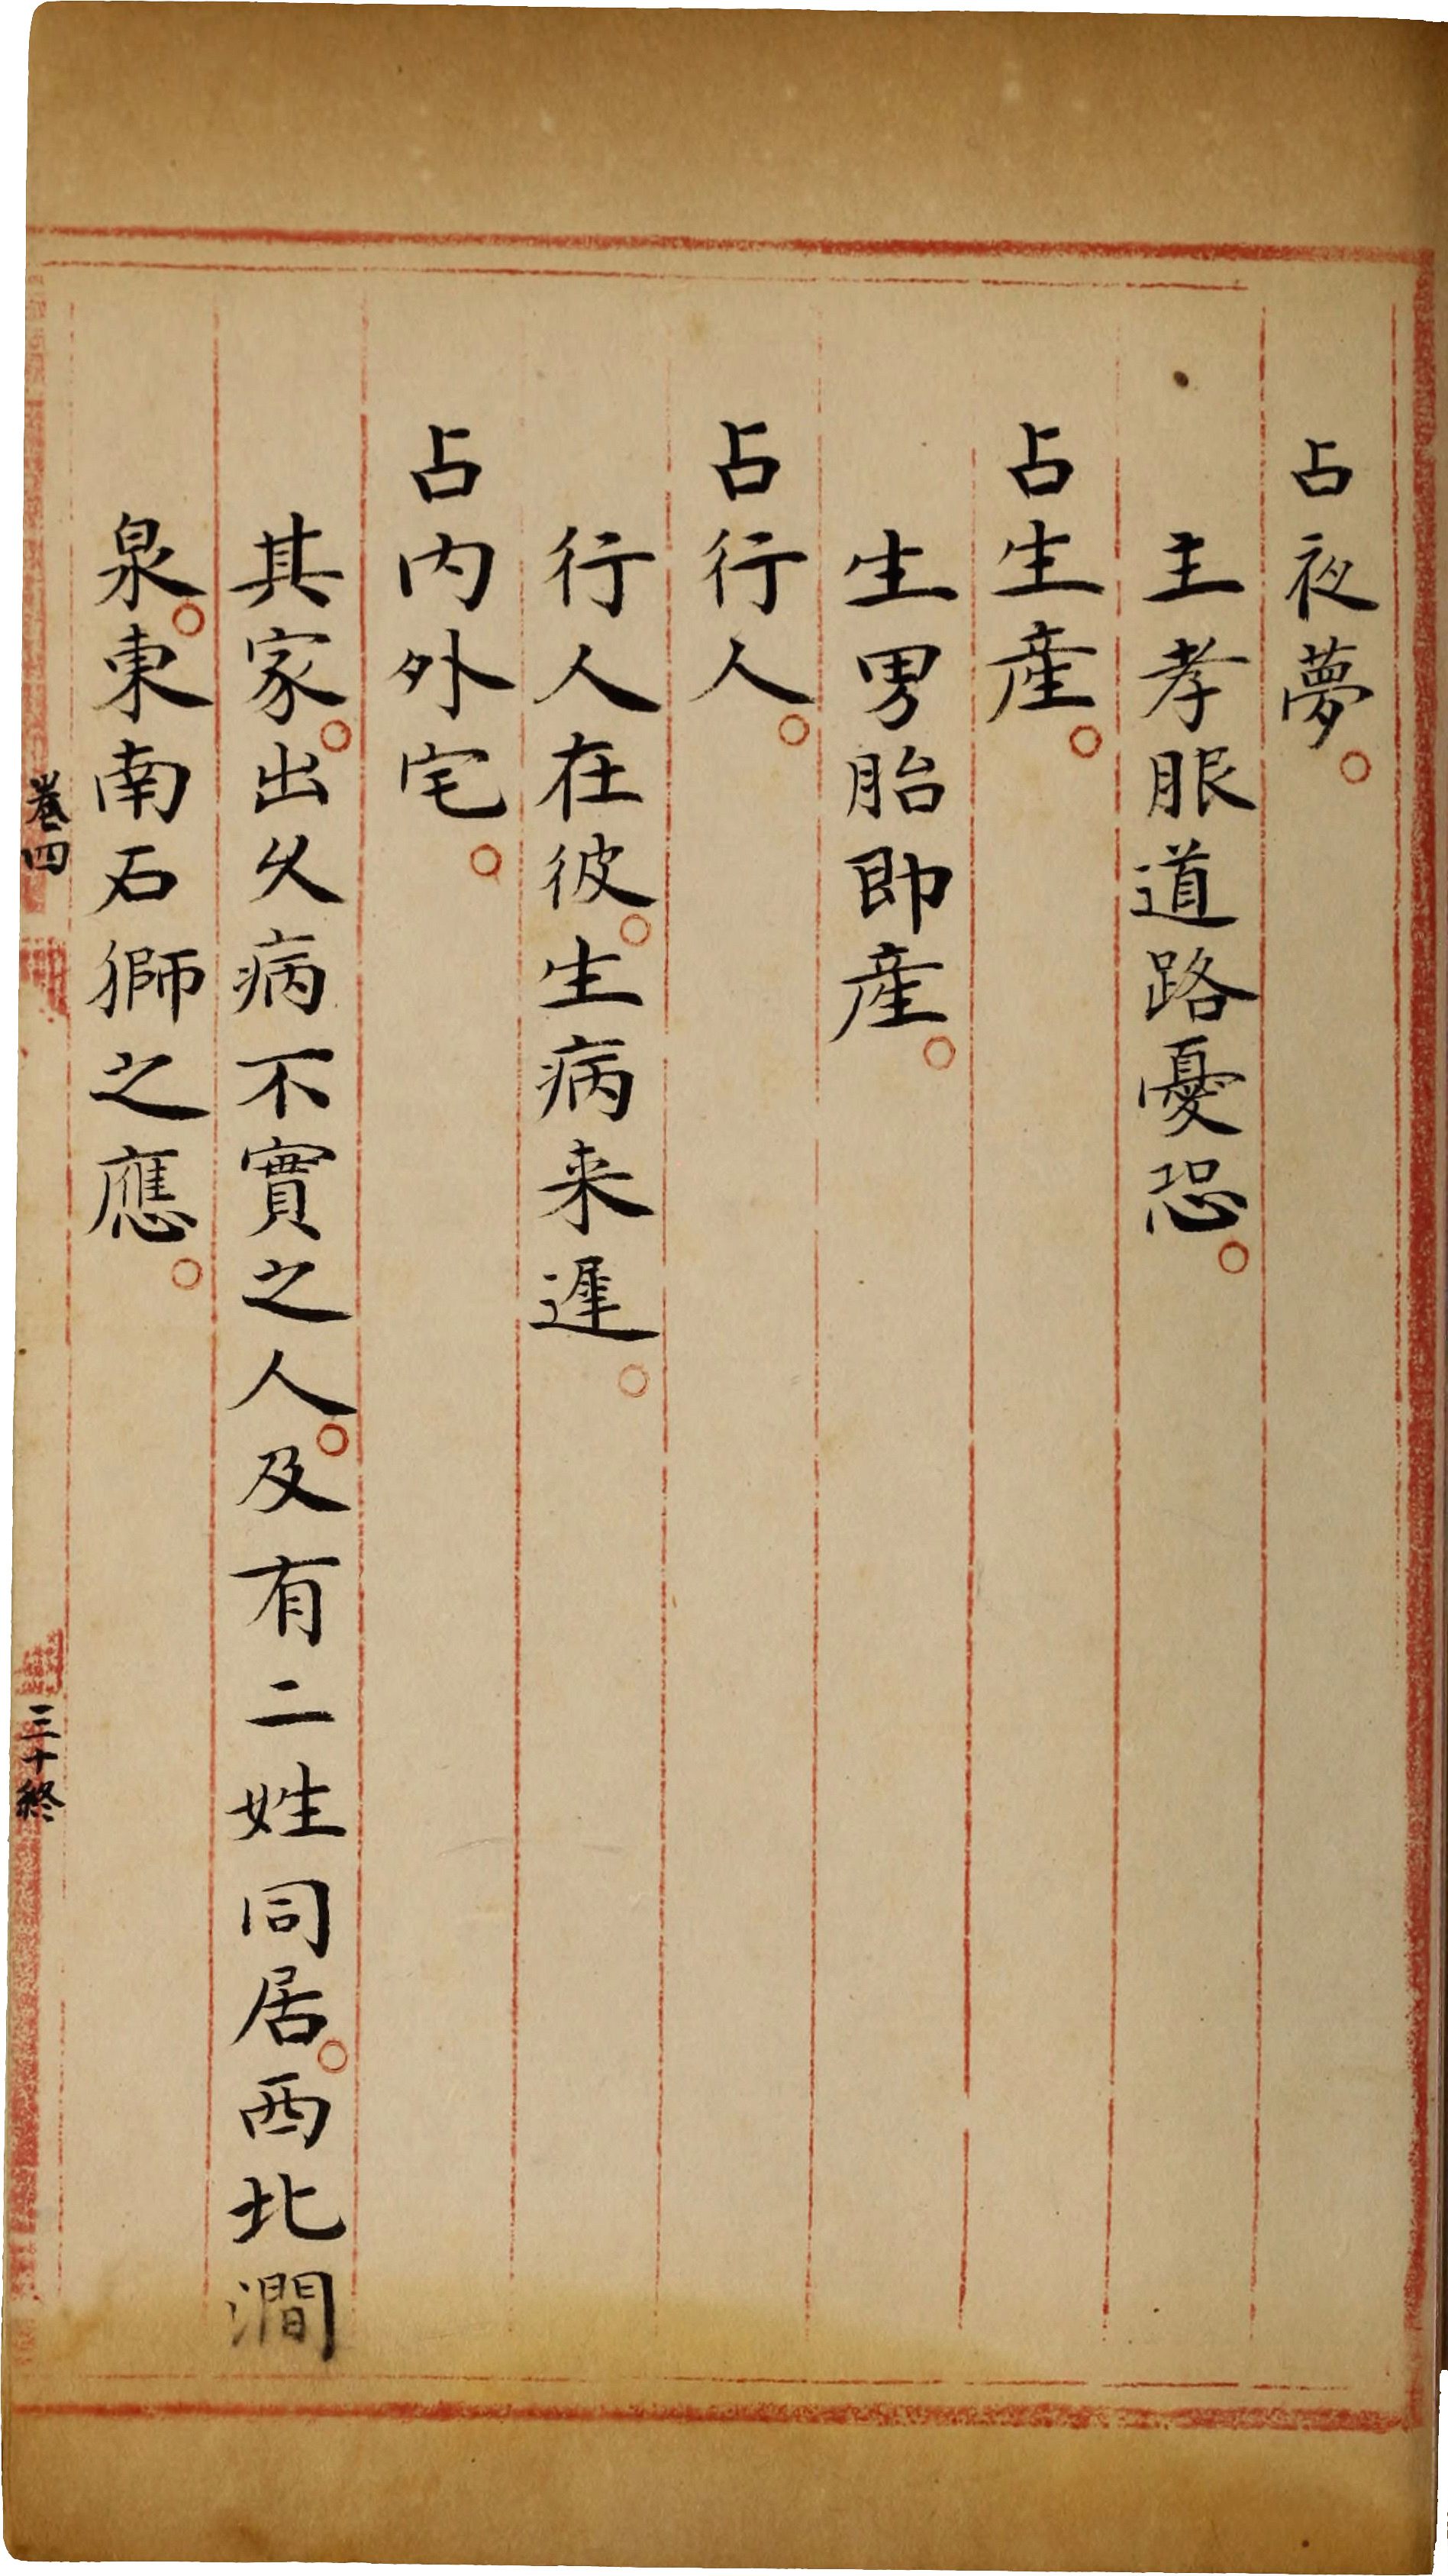 占夜夢。
主孝服道路憂恐。
占生産。
生男胎即産。
占行人。
行人在彼。生病来遲。
占内外宅。
其家。出久病不實之人。及有二姓同居。西北澗
泉。東南石獅之應。
卷四
三十終